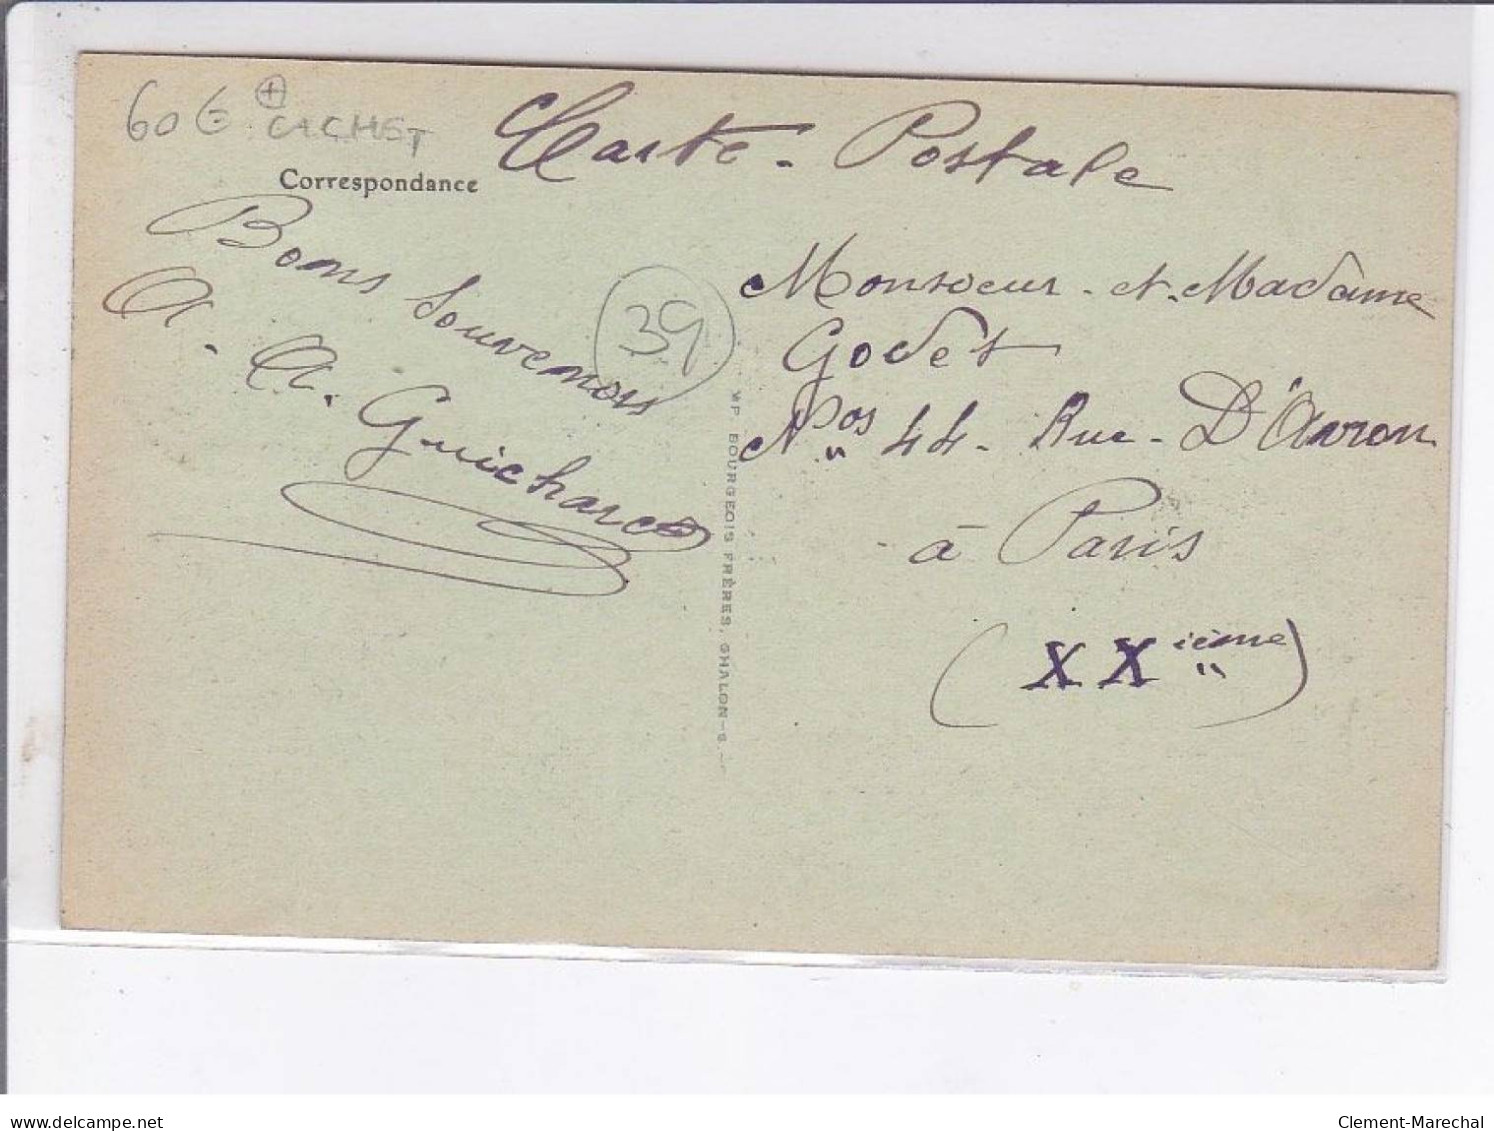 60€ + CACHET
Carte - Postale
Correspondance
Bons Souvenirs
A. A. Guichard
39
Monsieur et Madame
Godet
Nos 44 - Rue - D'Avron
à Paris
(XXième)
MP BOURGEOIS FRÈRES, CHALON-S.
delcampe.net
Clement-Marechal